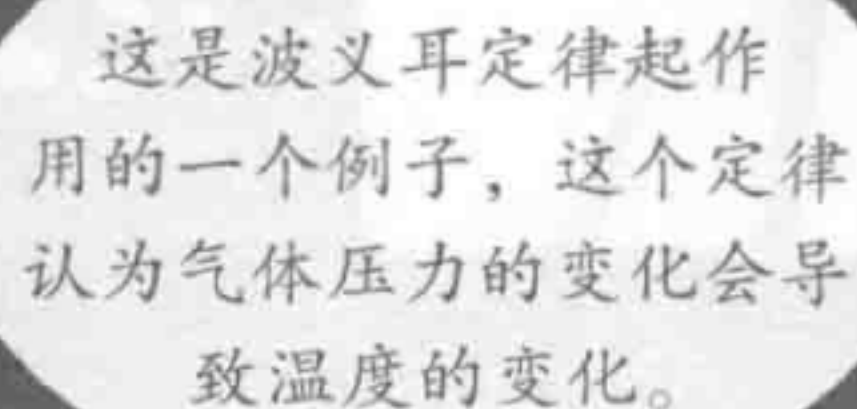 这是波义耳定律起作
用的一个例子，这个定律
认为气体压力的变化会导
致温度的变化。